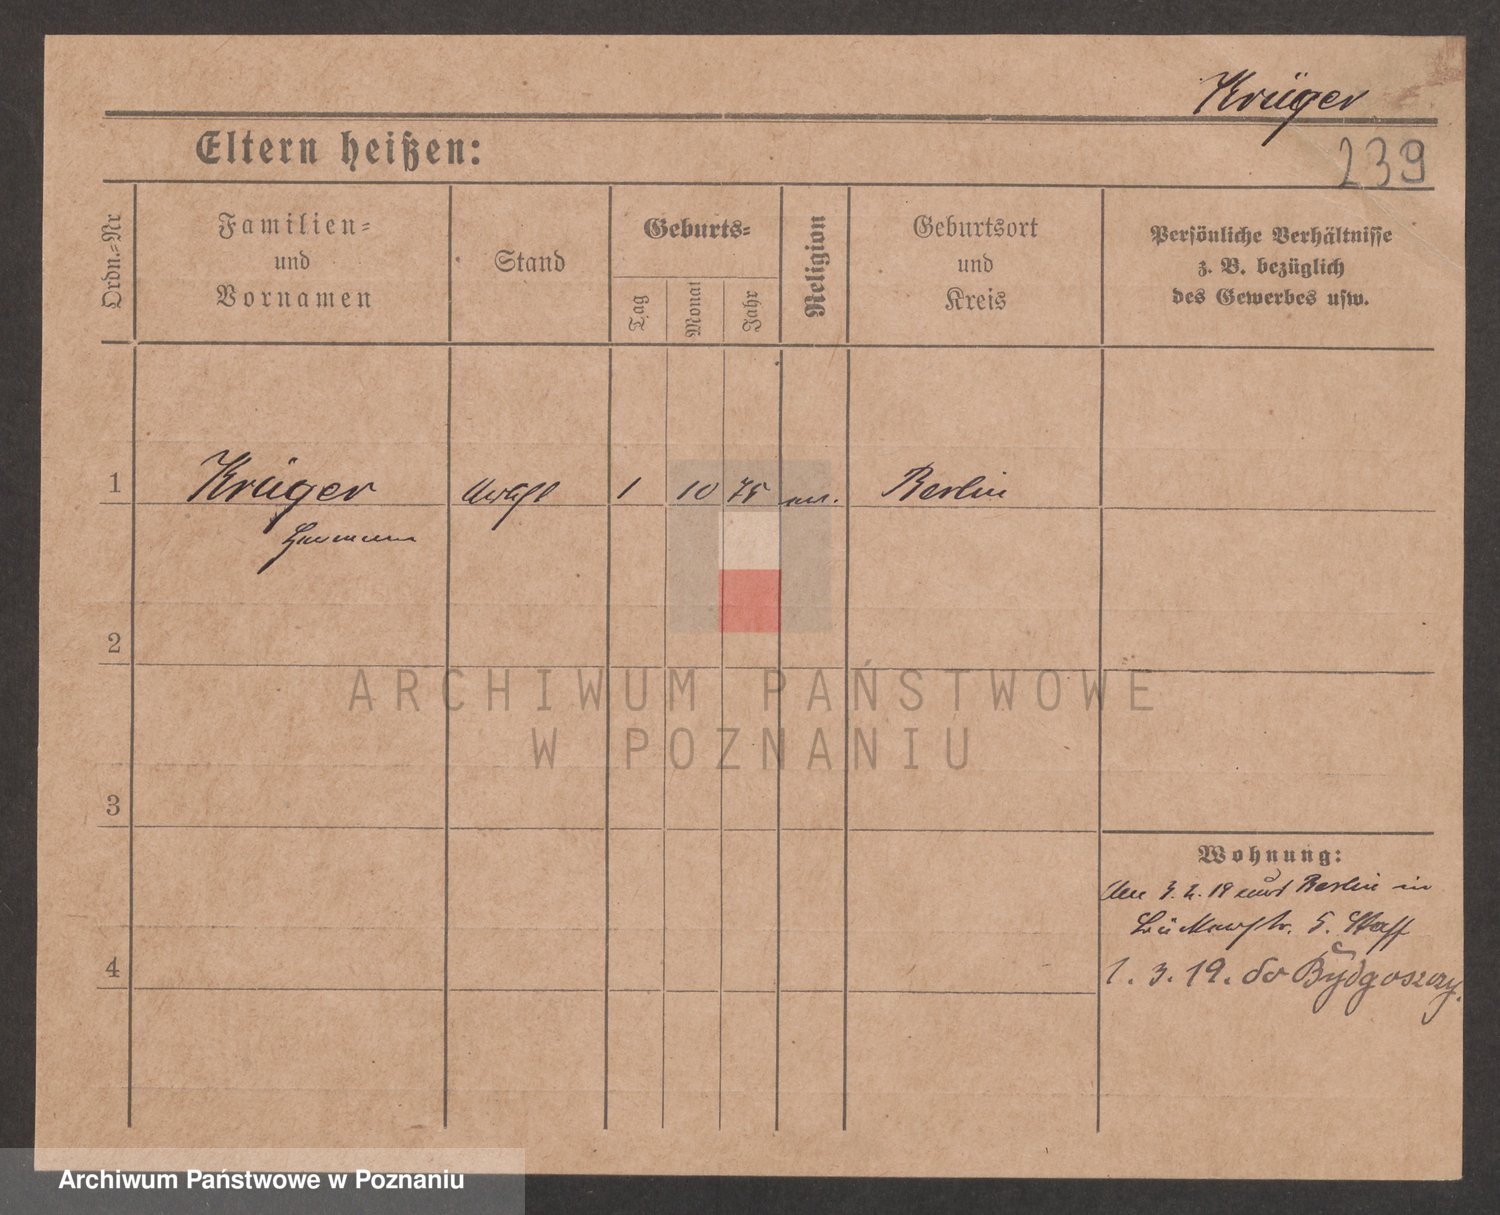 Krüger
239
Eltern heißen:
Ordn.=Nr
Familien=
und
Vornamen
Stand
Geburts=
Tag
Monat
Jahr
Religion
Geburtsort
und
Kreis
Persönliche Verhältnisse
z. B. bezüglich
des Gewerbes usw.
1 Krüger 1 10 75 Berlin
2
ARCHIWUM PAŃSTWOWE
W POZNANIU
3
Wohnung:
19 aus Berlin in
5.
4
1. 3. 19. do Bydgoszczy.
Archiwum Państwowe w Poznaniu